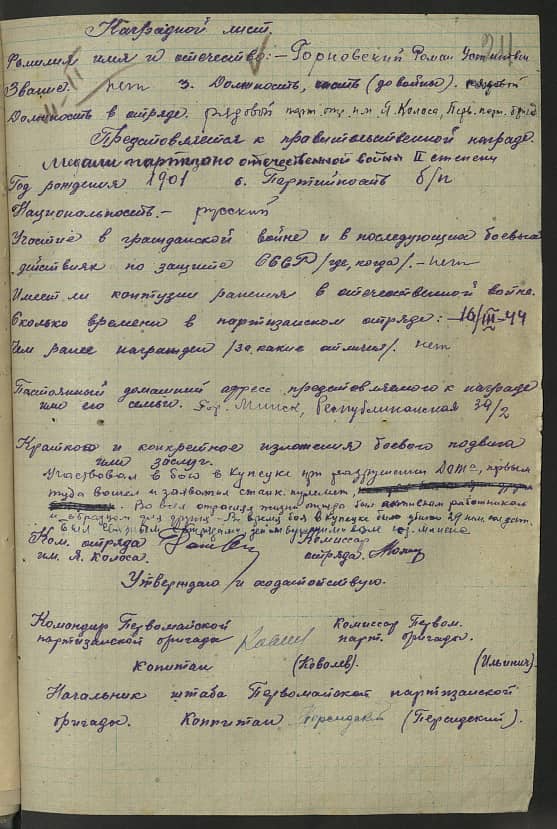 Наградной лист.
Фамилия имя и отечество: - Горновский Роман Устинович
Звание. нет 3. Должность, часть (до войны). рядовой
Должность в отряде. рядовой парт. отр. им. Я. Колоса, Перв. парт. бриг.
Представляется к правительственной награде.
Медали партизано отечественной войны II степени
Год рождения 1901 6. Партийность б/п
Национальность. - русский
Участие в гражданской войне и в последующих боевых
действиях по защите СССР /где, когда/. - нет
Имеет ли контузии ранения в отечественной войне.
Сколько времени в партизанском отряде: - 16/III-44
Чем ранее награжден /за какие отличия/. нет
Постоянный домашний адрес представляемого к награде
или его семьи. гор. Минск, Республиканская 39/2
Краткое и конкретное изложения боевого подвига
или заслуг.
Участвовал в бою в Купецке при разрушении ДОТа, первым
туда вошел и захватил станк. пулемет,
Во всей отрасли жизни отряда был активным работником
образцом для других - Во время боя в Купецке было убито 29
Был
Ком. отряда Комиссар
им. Я. Колоса. отряда.
Утверждаю и ходатайствую.
Командир Первомайской Комиссар Первом.
партизанской бригады парт. бригады.
Капитан (Ковалев) (Ильинич).
Начальник штаба Первомайской партизанской
бригады. Капитан Персидский (Персидский).